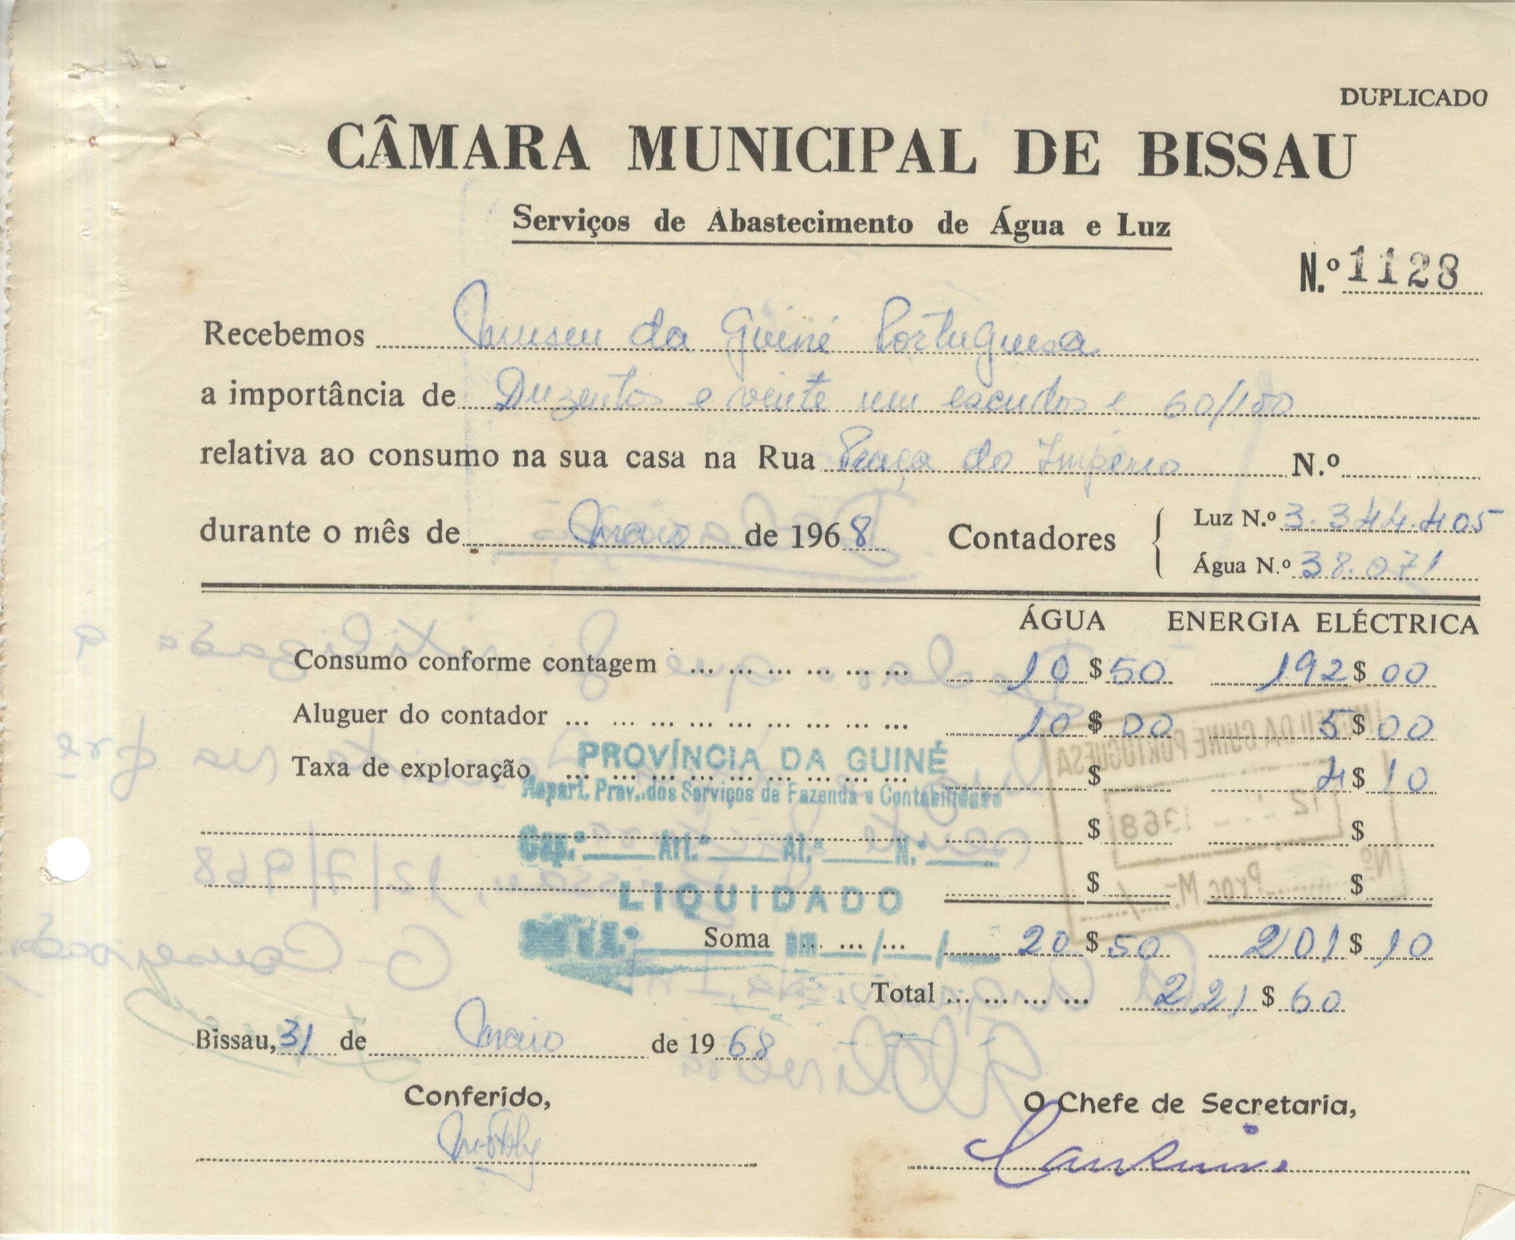 DUPLICADO
CÂMARA MUNICIPAL DE BISSAU
Serviços de Abastecimento de Água e Luz
N.º 1128
Recebemos Museu da Guiné Portuguesa
a importância de Duzentos e vinte um escudos e 60/100
relativa ao consumo na sua casa na Rua Praça do Império N.º
durante o mês de Maio de 1968 Contadores
Luz N.º 3.344.405
Água N.º 38.071
ÁGUA ENERGIA ELÉCTRICA
Consumo conforme contagem ... 10 $ 50 192 $ 00
Aluguer do contador ... 10 $ 00 5 $ 00
Taxa de exploração ... $ 4 $ 10
$ $
$ $
PROVÍNCIA DA GUINÉ
Repart. Prov. dos Serviços de Fazenda e Contabilidade
Cap.º Art.º Al.ª N.º
LIQUIDADO
Soma ... 20 $ 50 201 $ 10
Total ... 221 $ 60
Bissau, 31 de Maio de 1968
Conferido, O Chefe de Secretaria,
MUSEU DA GUINÉ PORTUGUESA
12 1968
Nº Proc. M.
12/7/968